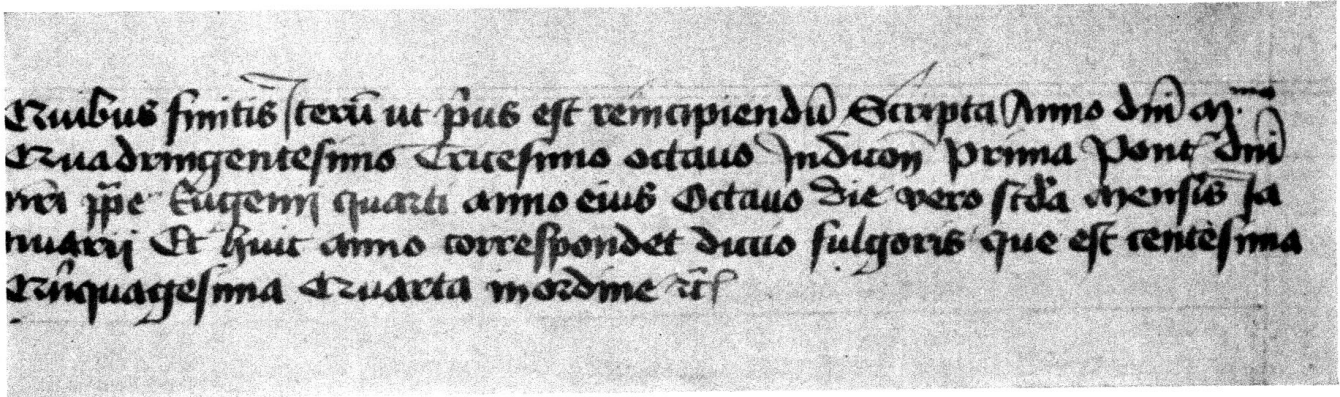 Quibus finitis Iterũ ut p̃us est reincipiendũ Scripta Anno dñi M.
Quadringentesimo Tricesimo octauo Indicoñ prima Pont᷑ dñi
nr̃i pp̃e Eugenij quarti anno eius Octauo die vero scd̃a mensis Ja
nuarij Et huic anno correspondet dictio fulgoris que est centesima
Quĩquagesima Quarta in ordine ⁊c̃